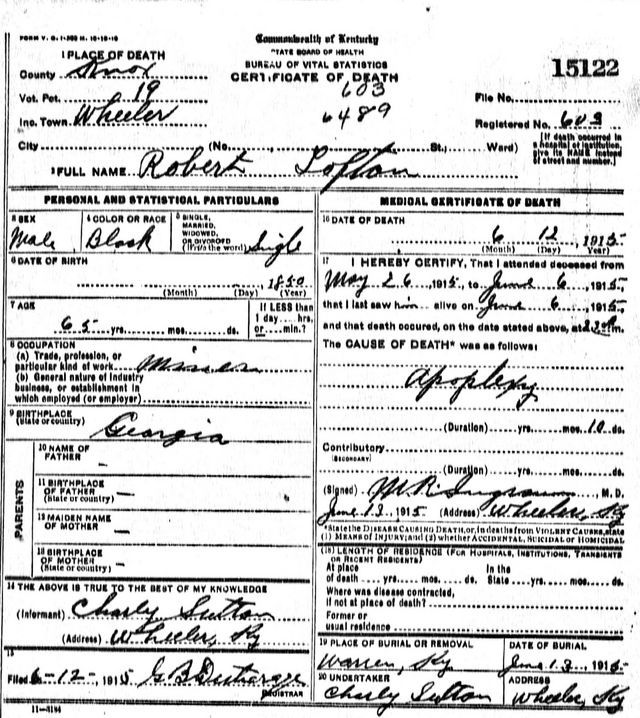 FORM V. S. 1-
Commonwealth of Kentucky
STATE BOARD OF HEALTH
BUREAU OF VITAL STATISTICS
CERTIFICATE OF DEATH
15122
1 PLACE OF DEATH
County Knox
Vot. Pct. 19
Inc. Town Wheeler
603
6489
File No.
Registered No. 603
City (No. St., Ward)
[If death occurred in a hospital or institution, give its NAME instead of street and number.]
2 FULL NAME Robert Lofton
PERSONAL AND STATISTICAL PARTICULARS
3 SEX
Male
4 COLOR OR RACE
Black
5 SINGLE, MARRIED, WIDOWED, OR DIVORCED
(Write the word) Single
6 DATE OF BIRTH
1850
(Month) (Day) (Year)
7 AGE
65 yrs. mos. ds.
If LESS than
1 day hrs.
or min.?
8 OCCUPATION
(a) Trade, profession, or
particular kind of work Miner
(b) General nature of industry
business, or establishment in
which employed (or employer)
9 BIRTHPLACE
(State or country) Georgia
PARENTS
10 NAME OF
FATHER —
11 BIRTHPLACE
OF FATHER —
(State or country)
12 MAIDEN NAME
OF MOTHER —
13 BIRTHPLACE
OF MOTHER —
(State or country)
14 THE ABOVE IS TRUE TO THE BEST OF MY KNOWLEDGE
(Informant) Charly Sutton
(Address) Wheeler, Ky
15
Filed 6-12-, 1915 G B
REGISTRAR
11-3184
MEDICAL CERTIFICATE OF DEATH
16 DATE OF DEATH
6 12, 1915
(Month) (Day) (Year)
17 I HEREBY CERTIFY, That I attended deceased from
May 26, 1915, to June 6, 1915,
that I last saw him alive on June 6, 1915,
and that death occured, on the date stated above, at m.
The CAUSE OF DEATH* was as follows:
Apoplexy
(Duration) yrs. mos. 10 ds.
Contributory
(SECONDARY)
(Duration) yrs. mos. ds.
(Signed) M R Ingram, M. D.
June 13, 1915 (Address) Wheeler, Ky
*State the DISEASE CAUSING DEATH, or, in deaths from VIOLENT CAUSES, state
(1) MEANS OF INJURY; and (2) whether ACCIDENTAL, SUICIDAL or HOMICIDAL
(18) LENGTH OF RESIDENCE (FOR HOSPITALS, INSTITUTIONS, TRANSIENTS
OR RECENT RESIDENTS)
At place In the
of death yrs. mos. ds. State yrs. mos. ds.
Where was disease contracted,
if not at place of death?
Former or
usual residence
19 PLACE OF BURIAL OR REMOVAL
Warren, Ky
DATE OF BURIAL
June 13, 1915
20 UNDERTAKER
Charly Sutton
ADDRESS
Wheeler, Ky